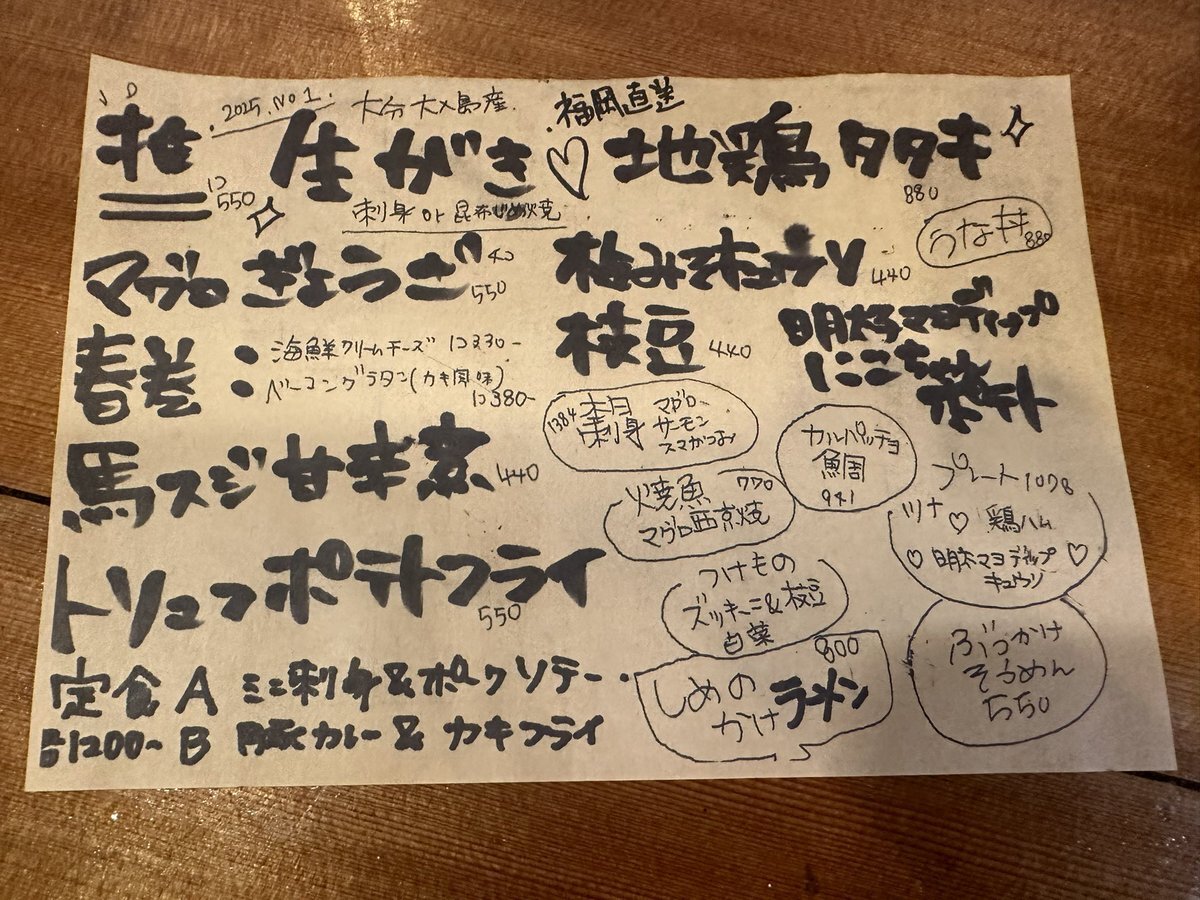 2025.NO1.
大分大メ島産.
推 生がき♡
1コ550
刺身 or 昆布じめ焼
福岡直送
地鶏タタキ
880
うな丼 880
マグロぎょうざ 550
梅みそキュウリ 440
春巻:
海鮮クリームチーズ 1コ330-
ベーコングラタン(カキ風味)
1コ380-
枝豆 440
明太マヨディップ
にこちゃん
ポテト
馬スジ甘辛煮 440
1384 刺身
マグロ
サーモン
スマがつお
カルパッチョ
鯛
941
焼魚 770
マグロ西京焼
プレート1078
ツナ♡鶏ハム
♡明太マヨディップ♡
キュウリ
トリュフポテトフライ
550
つけもの
ズッキーニ&枝豆
白菜
定食 A ミニ刺身&ポークソテー
各1200- B 豚カレー&カキフライ
800
しめの
かけラーメン
ぶっかけ
そうめん
550